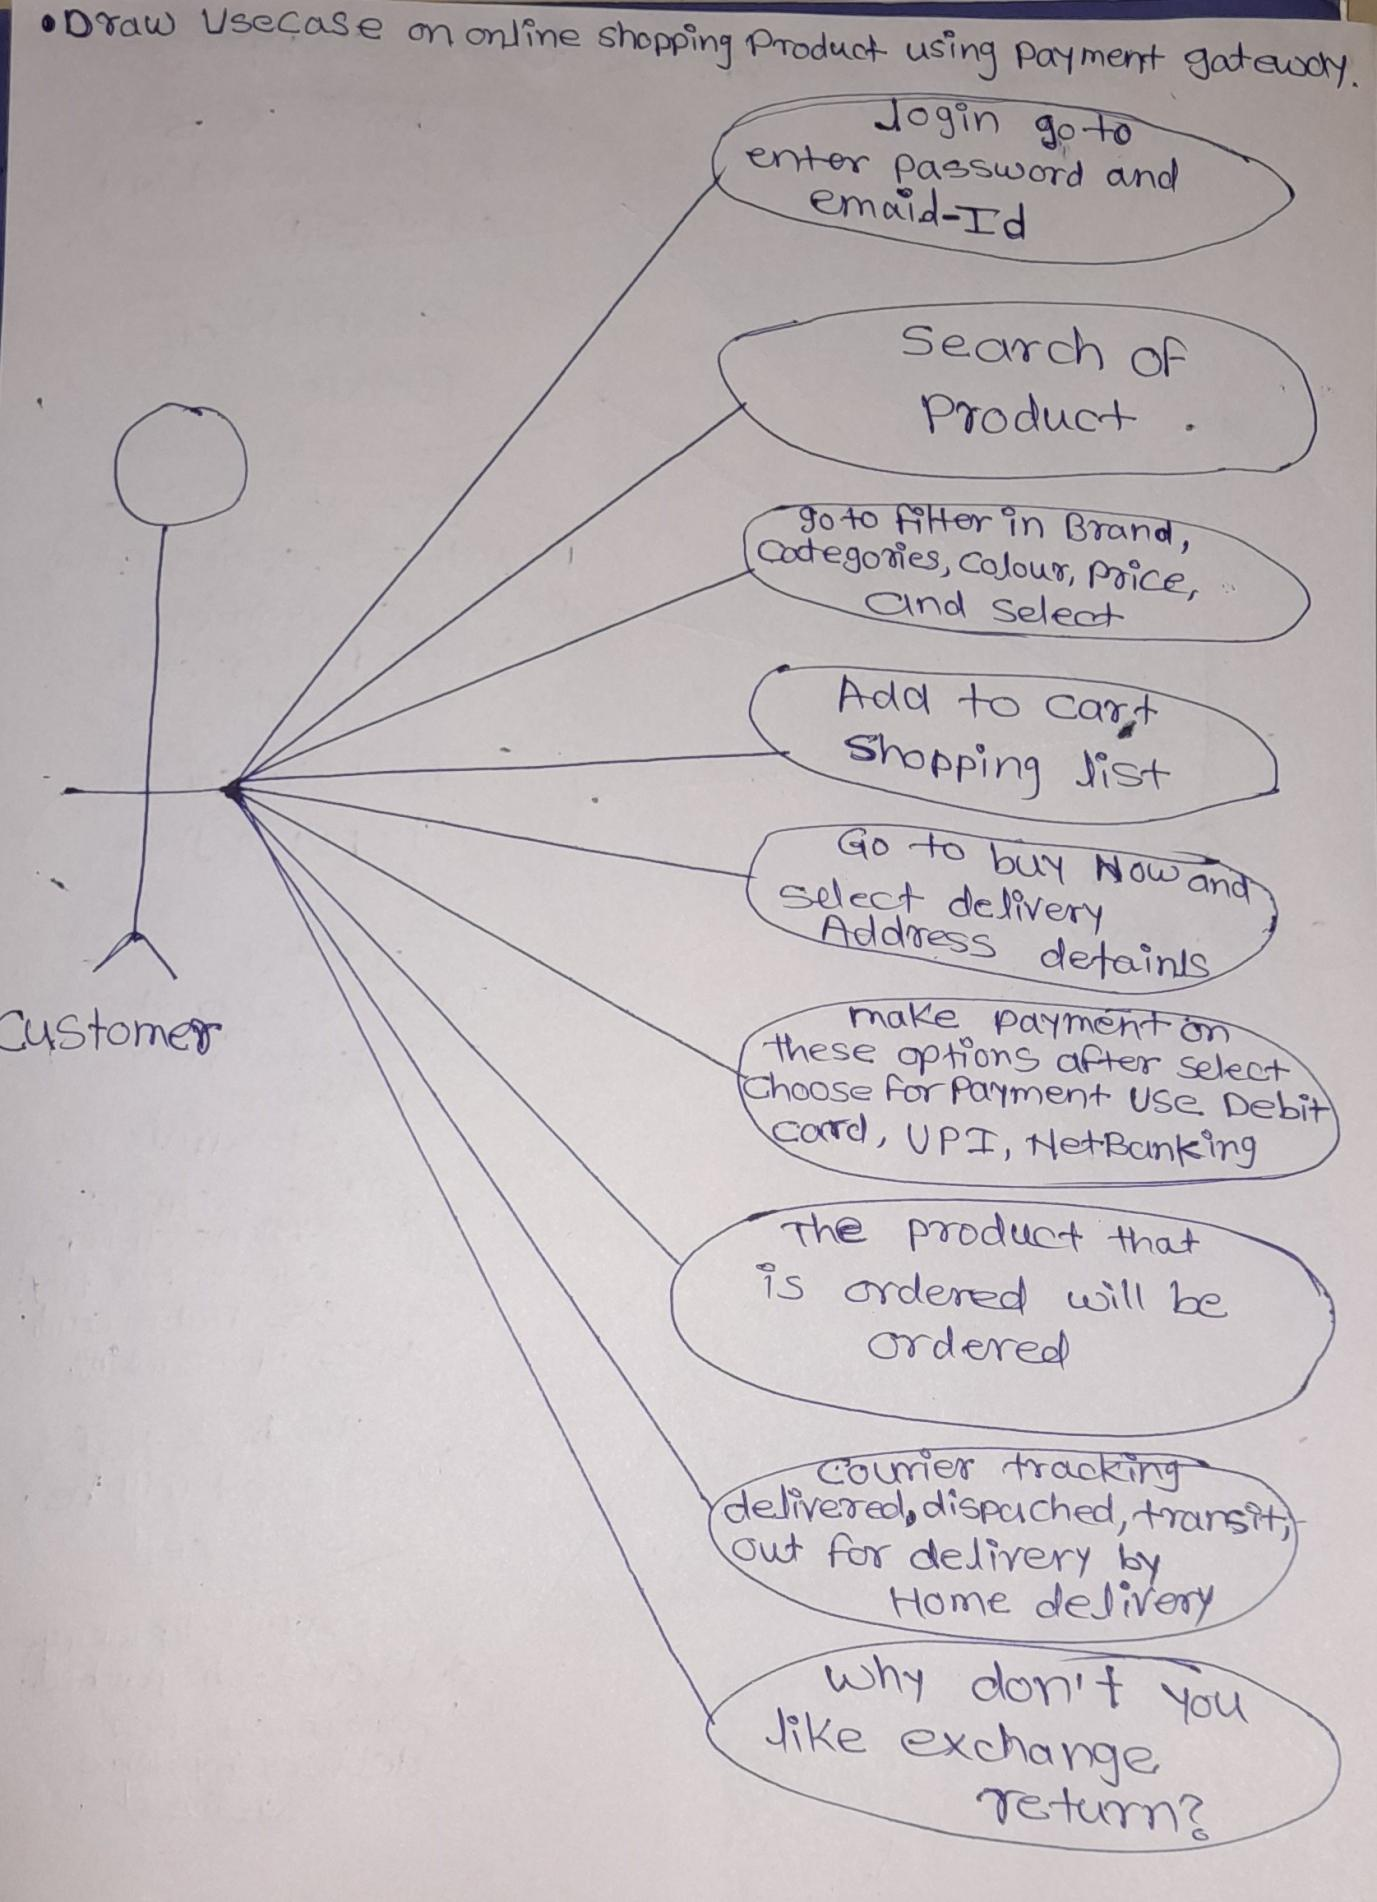 •Draw Usecase on online shopping Product using payment gateway.
login go to
enter password and
emaid-Id
Search of
Product .
go to filter in Brand,
Categories, Colour, price,
and select
Add to cart
shopping list
Go to buy Now and
select delivery
Address detainls
Customer
make payment on
these options after select
Choose for Payment use Debit
card, UPI, NetBanking
The product that
is ordered will be
ordered
Courier tracking
delivered, dispached, transit,
out for delivery by
Home delivery
Why don't you
like exchange
return?